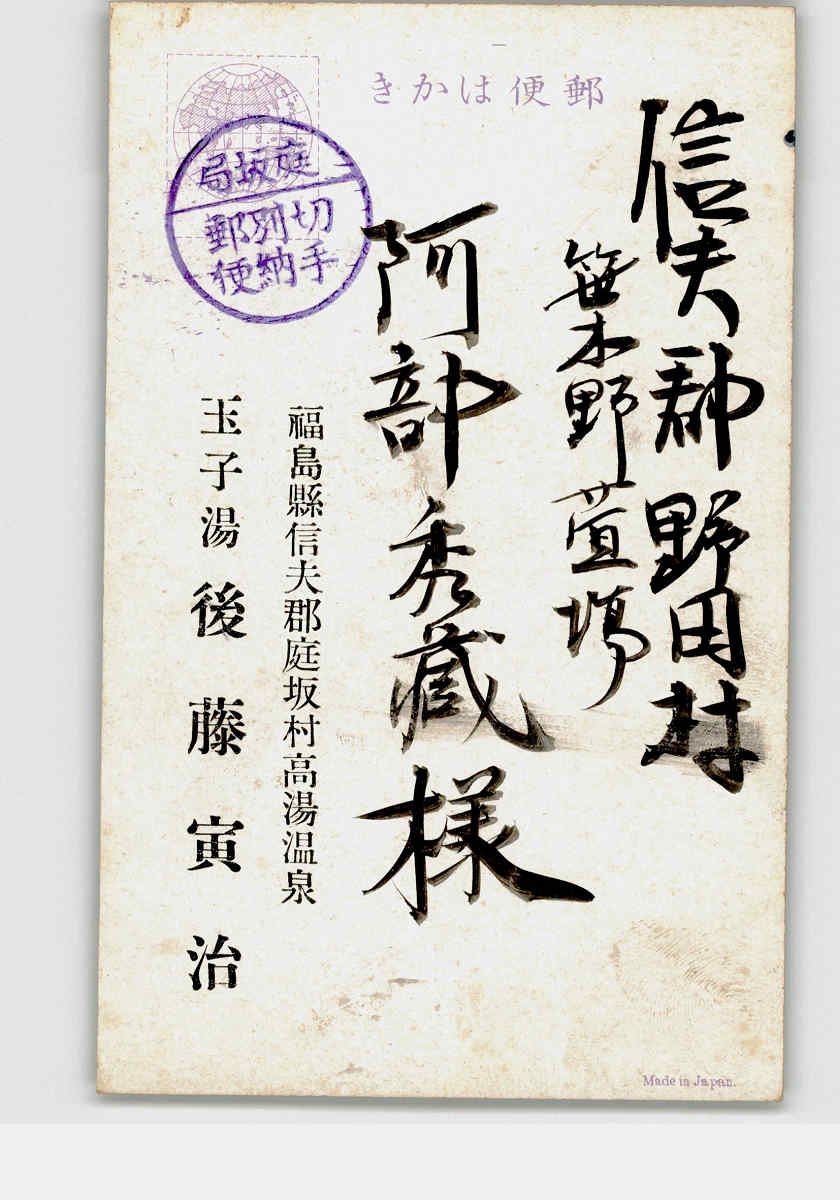 郵便はかき
信夫郡野田村
笹木野萱場
阿部秀蔵様
庭坂局
切手
別納
郵便
福島縣信夫郡庭坂村高湯温泉
玉子湯 後藤寅治
Made in Japan.